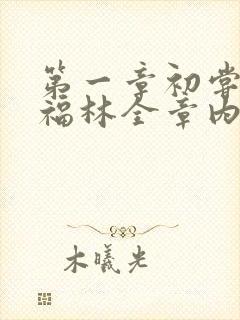 第一章初尝
福林全章内
木曦光